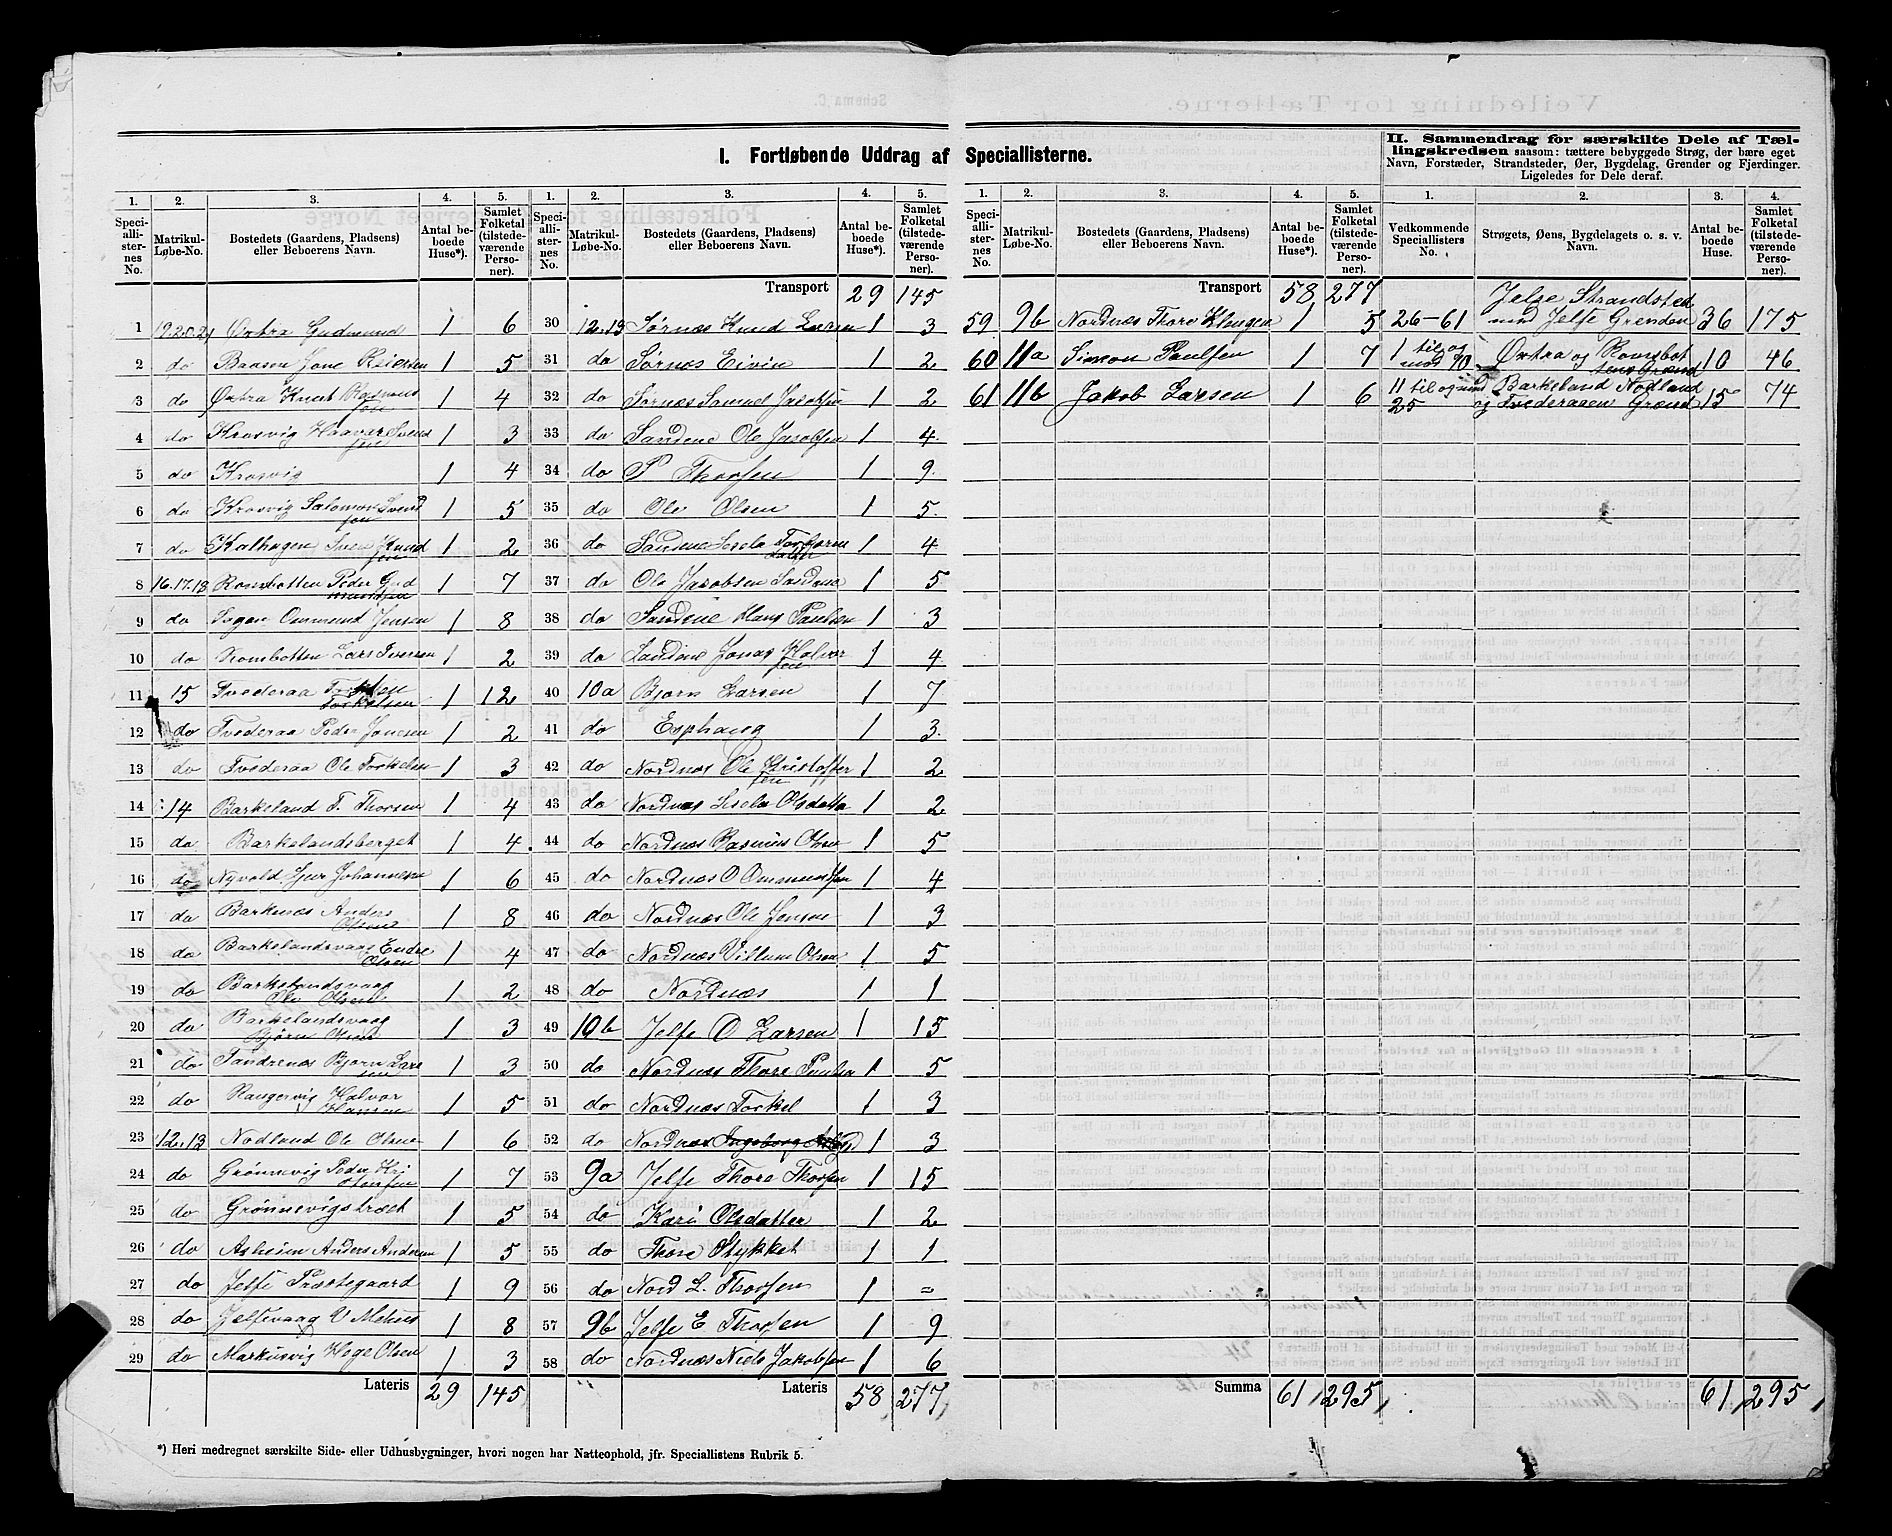 I. Fortløbende Uddrag af Speciallisterne.
II. Sammendrag for særskilte Dele af Tæl-
lingskredsen saasom: tættere bebyggede Strøg, der bære eget
Navn, Forstæder, Strandsteder, Øer, Bygdelag, Grender og Fjerdinger.
Ligeledes for Dele deraf.
1. 2. 3. 4. 5.
Speciallisternes No. Matrikul-Løbe-No. Bostedets (Gaardens, Pladsens) eller Beboerens Navn. Antal beboede Huse*). Samlet Folketal (tilstedeværende Personer).
1 19.20.21 Øxtra Gudmund 1 6
2 do Baasen Jone 1 5
3 do Øxtra Knut Rasmussen 1 4
4 do Krosvig Haavar Svendsen 1 3
5 do Krosvig 1 4
6 do Krosvig Salomon Svendsen 1 5
7 do Kalhagen Knudsen 1 2
8 16.17.18 Rombotten Peder Gudmundsen 1 7
9 do Ommund Jensen 1 8
10 do Rombotten Lars Iversen 1 2
11 15 Tvederaa Torkelsen 1 12
12 do Tvederaa Peder Jonesen 1 2
13 do Tvederaa Ole Torkelsen 1 3
14 14 Barkeland T. Thorsen 1 4
15 do Barkelandsberget 1 4
16 do Nyvold Sjur Johannesen 1 6
17 do Barknæs Anders Olsen 1 8
18 do Barkelandsvaag Endre Olsen 1 4
19 do Barkelandsvaag Ole Olsen 1 2
20 do Barkelandsvaag Bjørn Olsen 1 3
21 do Bjørn Larssen 1 3
22 do Halvor Hansen 1 5
23 12.13 Nodland Ole Olsen 1 6
24 do Grønnevig Peder Kristensen 1 7
25 do Grønnevigstræet 1 5
26 do Asheim Anders Andersen 1 5
27 do Jelse Præstegaard 1 9
28 do Jelsevaag V Mehus 1 8
29 do Markusvig Olsen 1 3
Lateris 29 145
1. 2. 3. 4. 5.
Speciallisternes No. Matrikul-Løbe-No. Bostedets (Gaardens, Pladsens) eller Beboerens Navn. Antal beboede Huse*). Samlet Folketal (tilstedeværende Personer).
Transport 29 145
30 12.13 Sørnæs Knud Larsen 1 3
31 do Sørnæs Eivin 1 2
32 do Sørnæs Samuel Jacobsen 1 2
33 do Sandene Ole Jacobsen 1 4
34 do P Thorsen 1 9
35 do Ole Olsen 1 5
36 do Sandene Sisela 1 4
37 do Ole Jacobsen Sandene 1 5
38 do Sandene Hans Paulsen 1 3
39 do Sandene Jonas Halvorsen 1 4
40 10a Bjørn Larsen 1 7
41 do Esphaug 1 3
42 do Nordnæs Ole Kristoffersen 1 2
43 do Nordnæs Sisela Olsdatter 1 2
44 do Nordnæs Rasmus Olsen 1 5
45 do Nordnæs O Ommundsen 1 4
46 do Nordnæs Ole Jonsen 1 3
47 do Nordnæs Villum Olsen 1 5
48 do Nordnæs 1 1
49 10b Jelse O Larsen 1 15
50 do Nordnæs Thore Paulsen 1 5
51 do Nordnæs Torkel 1 3
52 do Nordnæs Ingeborg 1 3
53 9a Jelse Thore Thorsen 1 15
54 do Kari Olsdatter 1 2
55 do Thore Stykket 1 1
56 do Nord L. Thorsen 1 =
57 9b Jelse E Thorsen 1 9
58 do Nordnæs Niels Jakobsen 1 6
Lateris 58 277
1. 2. 3. 4. 5.
Speciallisternes No. Matrikul-Løbe-No. Bostedets (Gaardens, Pladsens) eller Beboerens Navn. Antal beboede Huse*). Samlet Folketal (tilstedeværende Personer).
Transport 58 277
59 9b Nordnæs Thore Klungen 1 5
60 11a Simon Paulsen 1 7
61 11b Jakob Larsen 1 6
Summa 61 295
1. 2. 3. 4.
Vedkommende Speciallisters No. Strøgets, Øens, Bygdelagets o. s. v. Navn. Antal beboede Huse. Samlet Folketal (tilstedeværende Personer).
26-61 Jelse Strandsted med Jelse Grenden 36 175
1 til og med 10 Øxtra og Rombottens Grend 10 46
11 til og med 25 Barkeland Nodland og Tvederaaen Grend 15 74
61 295
*) Heri medregnet særskilte Side- eller Udhusbygninger, hvori nogen har Natteophold, jfr. Speciallistens Rubrik 5.